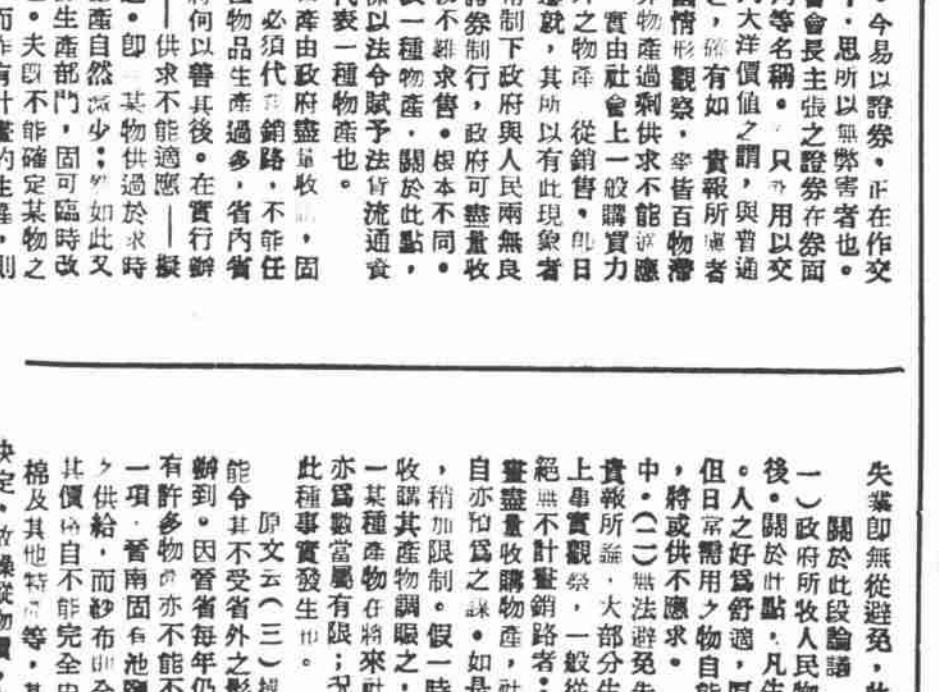 。今易以證券，正在作交
，思所以無弊害者也。
會會長主張之證券在券面
等名稱。只用以交
大洋價值之謂，與普通
，確有如　貴報所慮者
國情形觀察，率皆百物滯
物產過剩供求不能適應
實由社會上一般購買力
之物產　從銷售，即日
就，其所以有此現象者
制下政府與人民兩無良
券制行，政府可盡量收
不難求售。根本不同。
一種物產，關於此點，
以法令賦予法貨流通資
代表一種物產也。
產由政府盡量收　，固
必須代　銷路，不能任
物品生產過多，省內省
何以善其後。在實行辦
——供求不能適應——擬
。即　某物供過於求時
產自然減少；　如此又
生產部門，固可臨時改
。夫既不能確定某物之
而作有計畫的生產，則
失業即無從避免，
關於此段論議
一）政府所收人民物
後。關於此點，凡生
。人之好為舒適，
但日常需用之物自能
，將或供不應求。
中。（二）無法避免失
貴報所論，大部分生
上事實觀察，一般從
絕無不計畫銷路者；
畫盡量收購物產，社
自亦預為之謀。如是
，稍加限制。假一時
收購其產物調賑之，
一某種產物在將來社
亦為數當屬有限；況
此種事實發生也。
原文云（三）
能令其不受省外之影
辦到。因晉省每年仍
有許多物　亦不能不
一項，晉南固有池鹽
之供給，而紗布　全
其價格自不能完全由
棉及其他特產等，其
決定，故操縱物價，